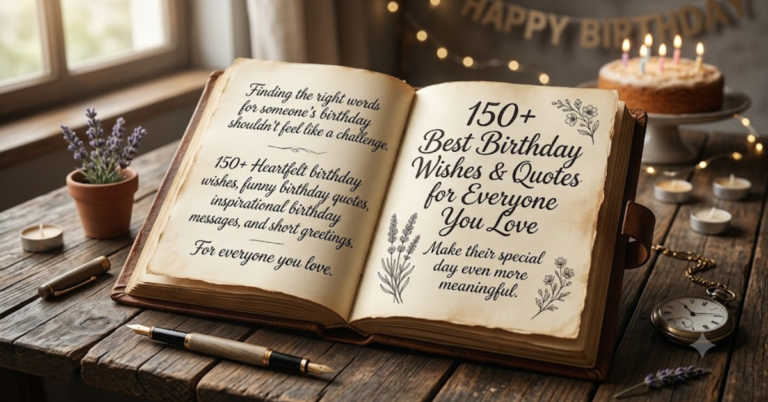 HAPPY BIRTHDAY
Finding the right words
for someone's birthday
shouldn't feel like a challenge.
150+ Heartfelt birthday
wishes, funny birthday quotes,
inspirational birthday
messages, and short greetings.
For everyone you love.
150+
Best Birthday
Wishes & Quotes
for Everyone
You Love
Make their special
day even more
meaningful.